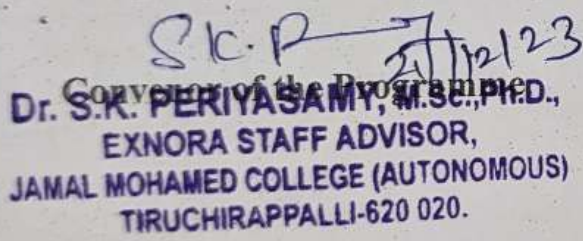 S.K.P
21/12/23
Convenor of the Programme
Dr. S.K. PERIYASAMY, M.Sc.,Ph.D.,
EXNORA STAFF ADVISOR,
JAMAL MOHAMED COLLEGE (AUTONOMOUS)
TIRUCHIRAPPALLI-620 020.